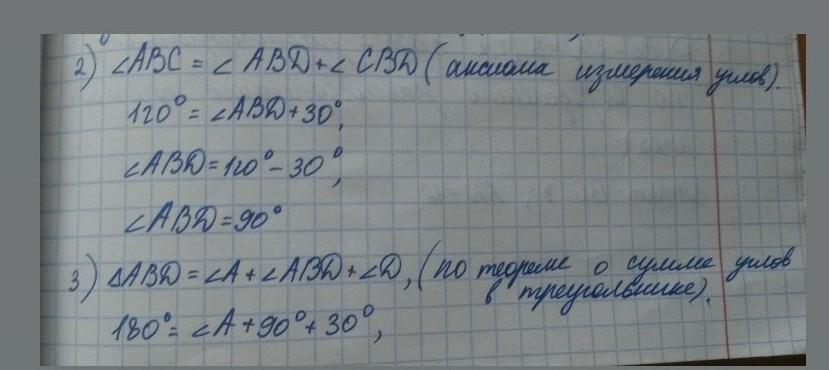 2) ∠ABC = ∠ABD + ∠CBD (аксиома измерения углов).
120° = ∠ABD + 30°,
∠ABD = 120° - 30°,
∠ABD = 90°
3) ΔABD = ∠A + ∠ABD + ∠D, (по теореме о сумме углов
в треугольнике).
180° = ∠A + 90° + 30°,